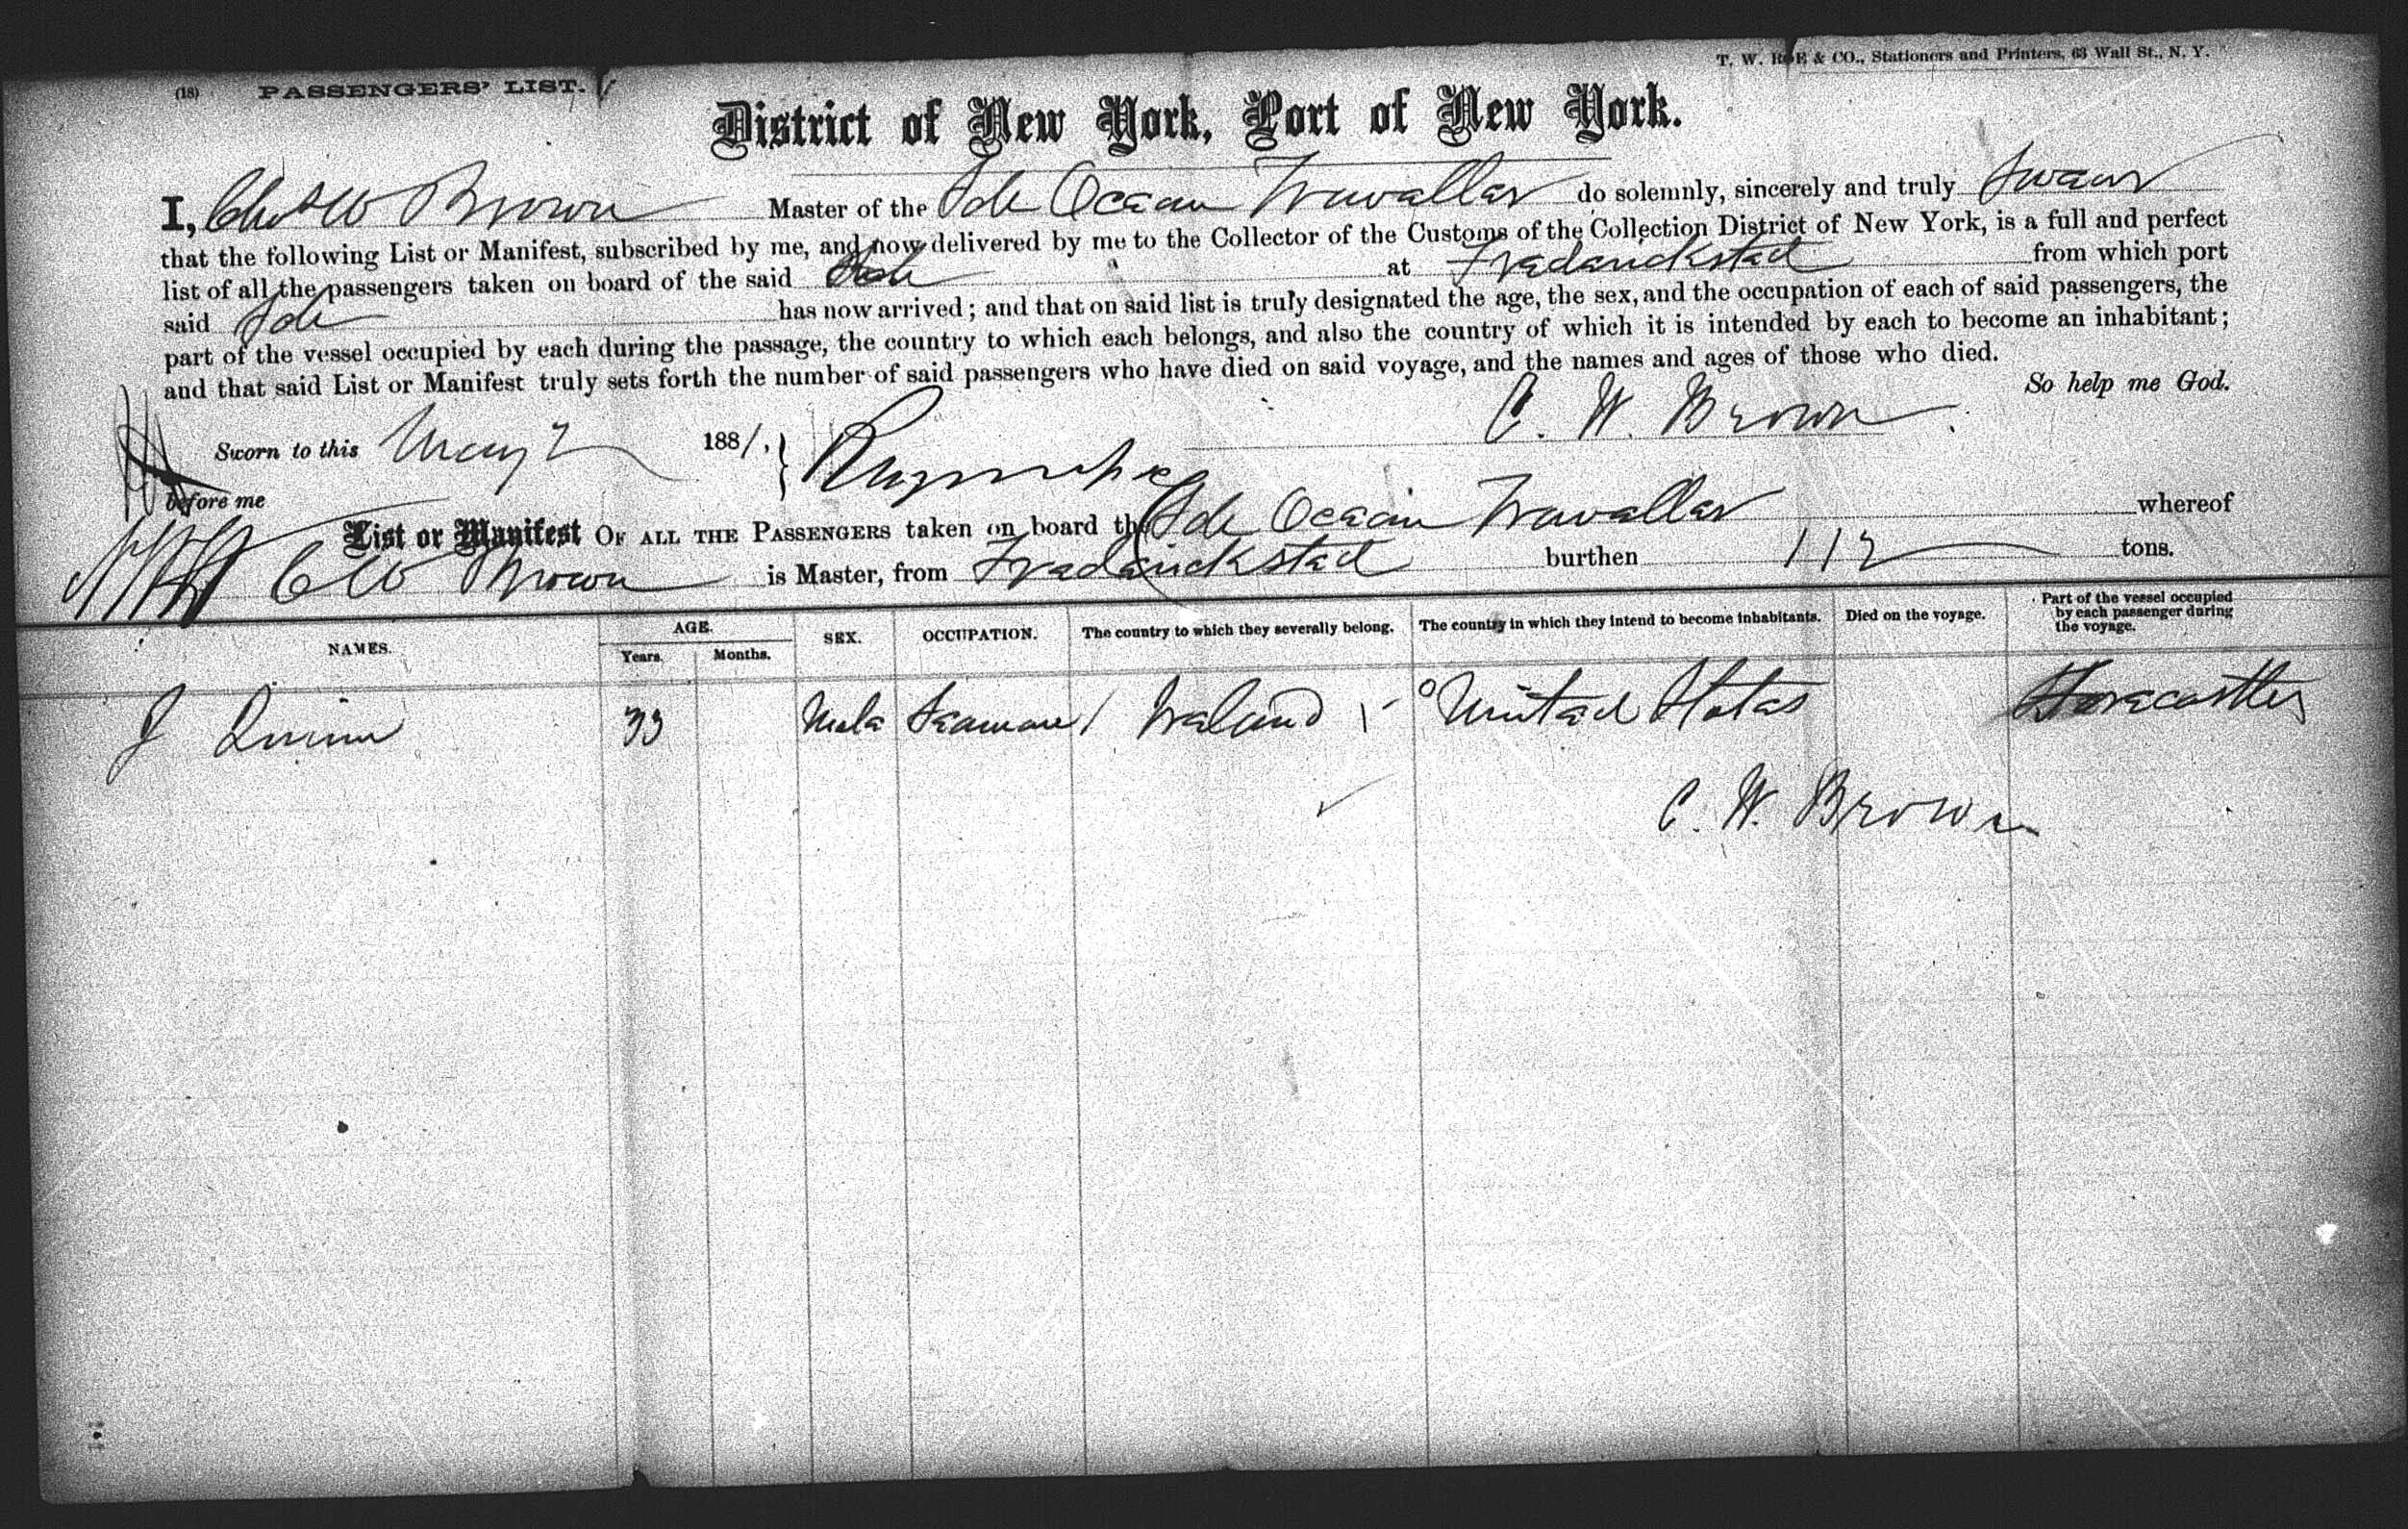 (18) PASSENGERS' LIST.
T. W. ROE & CO., Stationers and Printers, 63 Wall St., N. Y.
District of New York, Port of New York.
I, Chas W Brown Master of the Sch Ocean Travellar do solemnly, sincerely and truly Swear
that the following List or Manifest, subscribed by me, and now delivered by me to the Collector of the Customs of the Collection District of New York, is a full and perfect
list of all the passengers taken on board of the said Sch at Fredarickstad from which port
said Sch has now arrived; and that on said list is truly designated the age, the sex, and the occupation of each of said passengers, the
part of the vessel occupied by each during the passage, the country to which each belongs, and also the country of which it is intended by each to become an inhabitant;
and that said List or Manifest truly sets forth the number of said passengers who have died on said voyage, and the names and ages of those who died.
So help me God.
Sworn to this May 2 1881, } C. W. Brown
before me
List or Manifest OF ALL THE PASSENGERS taken on board the Sch Ocean Travellar whereof
C W Brown is Master, from Fredarickstad burthen 112 tons.
NAMES. AGE. Years. Months. SEX. OCCUPATION. The country to which they severally belong. The country in which they intend to become inhabitants. Died on the voyage. Part of the vessel occupied by each passenger during the voyage.
J Quinn 33 Male Seaman / Ireland United States Forecastle
C. W. Brown